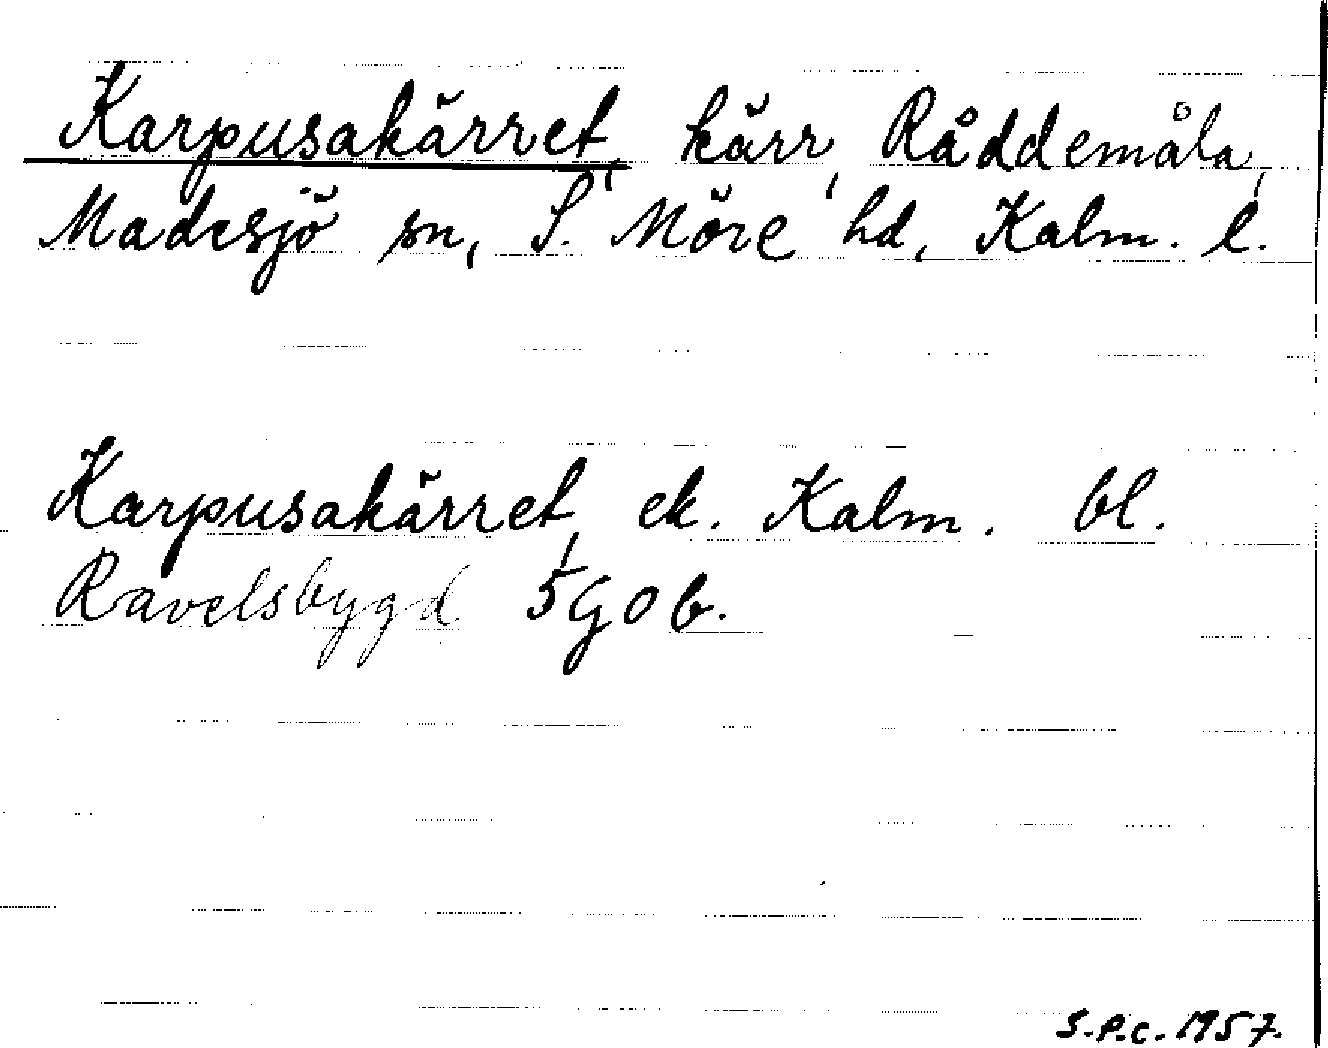 Karpusakärret, kärr, Råddemåla,
Madesjö sn, S. Möre hd, Kalm. l.
Karpusakärret, ek. Kalm. bl.
Ravelsbygd 5G0b.
S.P.C. 1957.